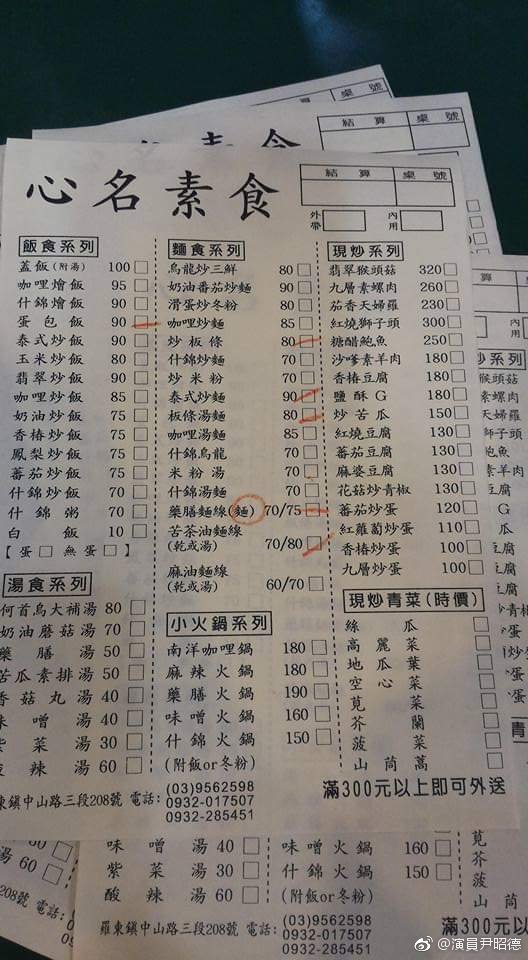 心名素食
結算
桌號
外帶
內用
飯食系列
蓋飯(附湯) 100
咖哩燴飯 95
什錦燴飯 90
蛋包飯 90
泰式炒飯 90
玉米炒飯 80
翡翠炒飯 90
咖哩炒飯 85
奶油炒飯 75
香椿炒飯 75
鳳梨炒飯 75
蕃茄炒飯 75
什錦炒飯 70
什錦粥 70
白飯 10
【蛋 無蛋 】
湯食系列
何首烏大補湯 80
奶油蘑菇湯 70
藥膳湯 50
苦瓜素排湯 50
香菇丸湯 40
味噌湯 40
紫菜湯 30
酸辣湯 60
麵食系列
烏龍炒三鮮 80
奶油番茄炒麵 90
滑蛋炒冬粉 80
咖哩炒麵 85
炒板條 80
什錦炒麵 70
炒米粉 70
泰式炒麵 90
板條湯麵 80
咖哩湯麵 85
什錦烏龍 70
米粉湯 70
什錦湯麵 70
藥膳麵線(麵) 70/75
苦茶油麵線
(乾或湯) 70/80
麻油麵線
(乾或湯) 60/70
小火鍋系列
南洋咖哩鍋 180
麻辣火鍋 180
藥膳火鍋 190
味噌火鍋 160
什錦火鍋 150
(附飯or冬粉)
現炒系列
翡翠猴頭菇 320
九層素螺肉 260
茄香天婦羅 230
紅燒獅子頭 300
糖醋鮑魚 250
沙嗲素羊肉 180
香椿豆腐 180
鹽酥G 180
炒苦瓜 150
紅燒豆腐 130
蕃茄豆腐 130
麻婆豆腐 130
花菇炒青椒 130
蕃茄炒蛋 120
紅蘿蔔炒蛋 110
香椿炒蛋 100
九層炒蛋 100
現炒青菜(時價)
絲瓜
高麗菜
地瓜葉
空心菜
莧菜
芥蘭
菠菜
山茼蒿
東鎮中山路三段208號 電話:
(03)9562598
0932-017507
0932-285451
滿300元以上即可外送
結算
桌號
素食
結算
桌號
炒系列
猴頭菇
素螺肉
天婦羅
獅子頭
鮑魚
素羊肉
豆腐
G
味噌湯 40
紫菜湯 30
酸辣湯 60
味噌火鍋 160
什錦火鍋 150
(附飯or冬粉)
莧
芥
菠
山茼
羅東鎮中山路三段208號 電話:
(03)9562598
0932-017507
0932-285451
滿300元
湯 60
208號 電話:
@演員尹昭德